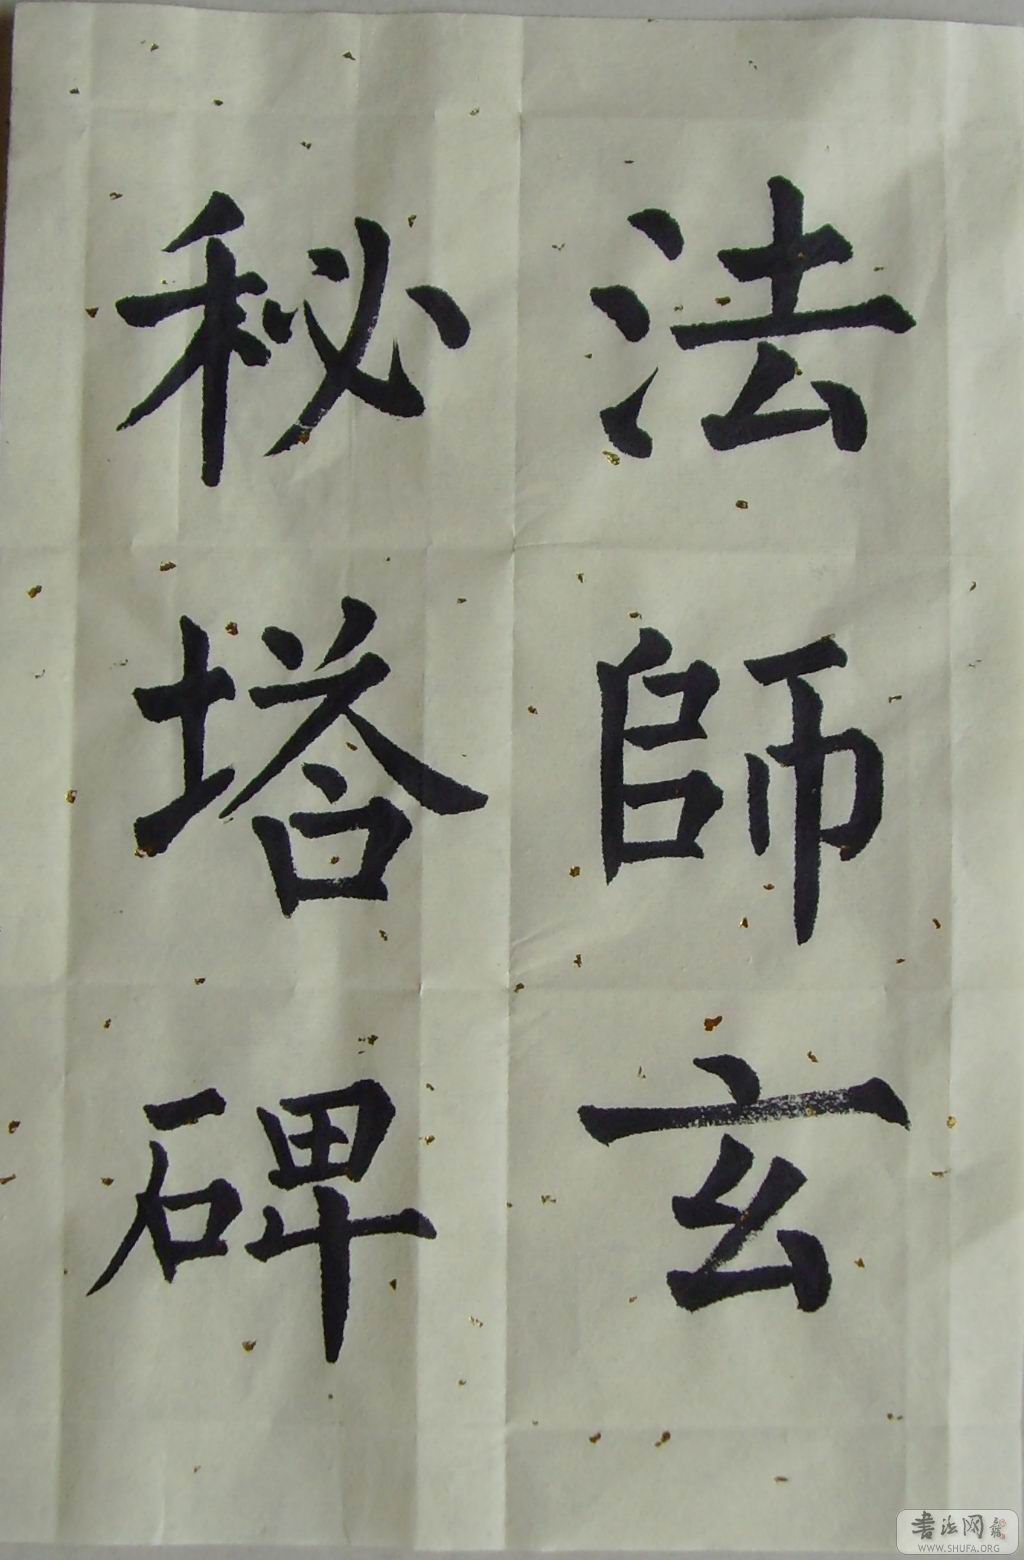 法師玄
秘塔碑
書法网
WWW.SHUFA.ORG